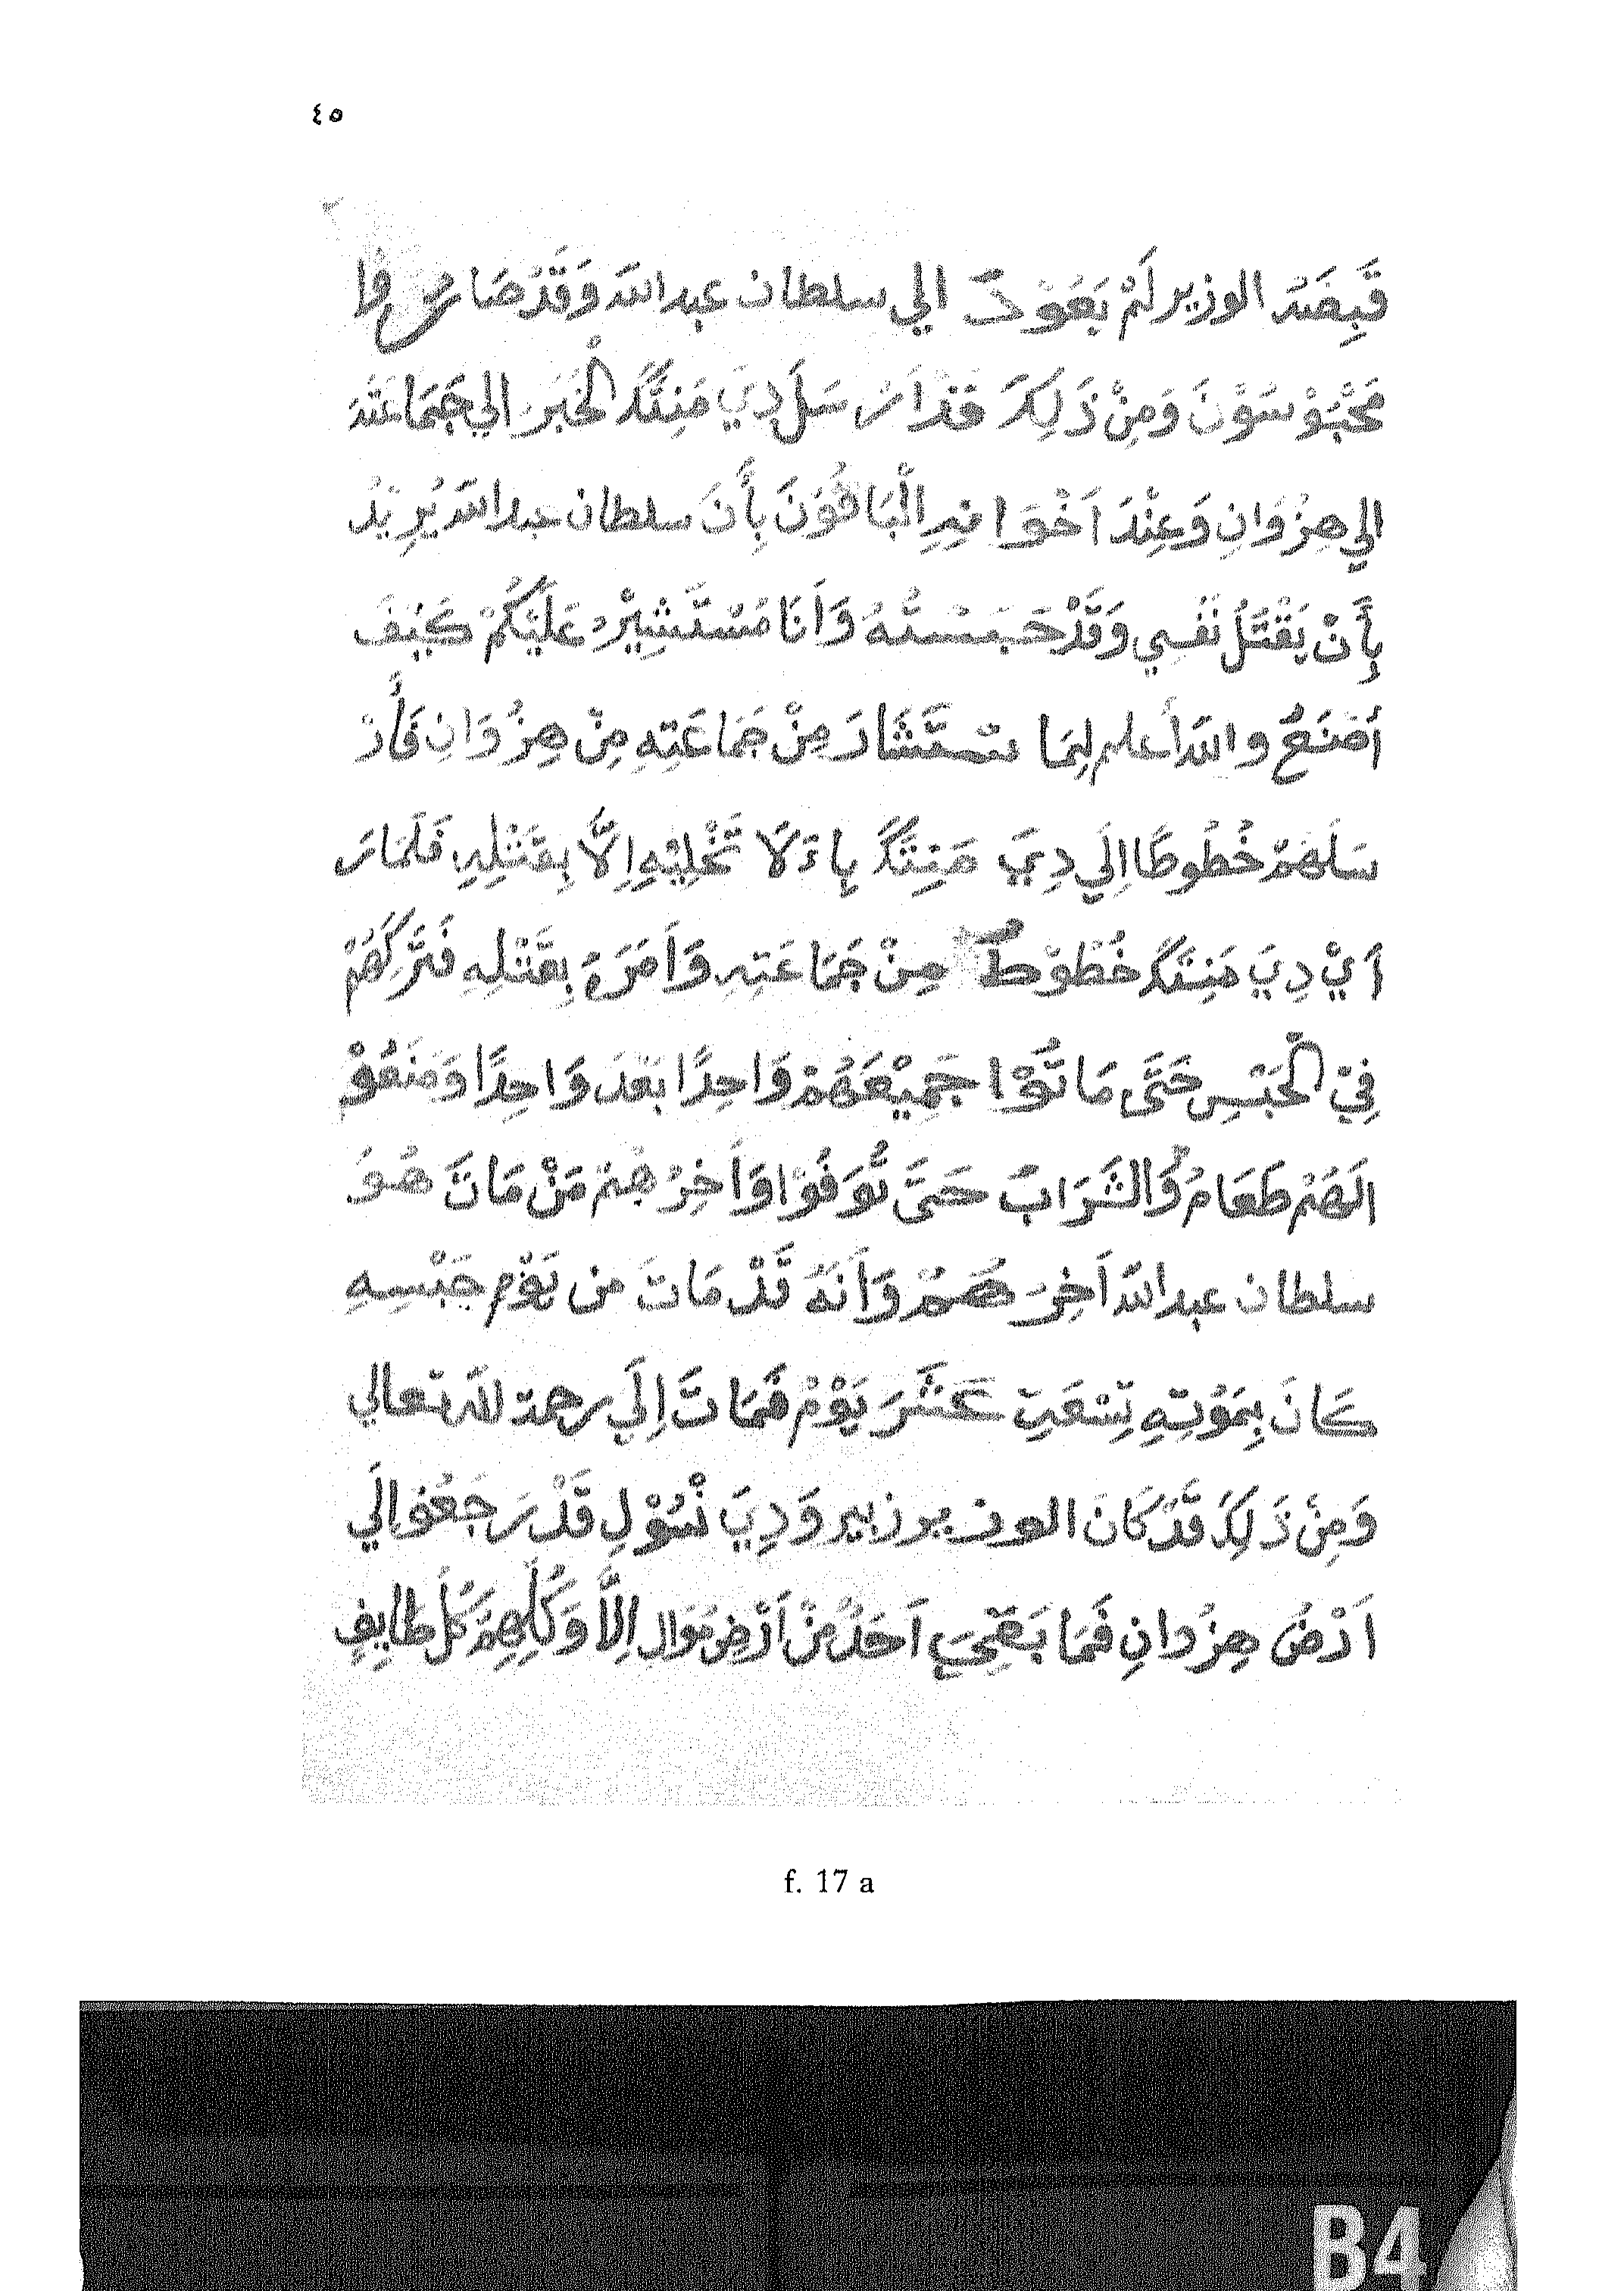 ٤٥
قَبِضَتْ الوزير لَمْ يَعَوْدَ الي سلطان عبد الله وَقَدْ صَارُوا
مَحْبُوْسَوْنَ وَمِنْ ذَلِكَ قَدْ اَرْسَلَ دِيَ مَنِتَّكَ الْخَبَرَ الي جَمَاعَتَهَ
الي هِزُوَانِ وَعِنْدَ اَخْوَانِهِ الْبَاقُوَنَ بِأَنَ سلطان عبد الله يُرِيْدُ
بِأَنْ يَقْتَلُ نَفْسِي وَقَدْ حَبَسْتُهُ وَاَنَا مُسْتَشِيْرْ عَلَيْكُمْ كَيْفَ
أَصْنَعُ والله أعلم لِمَا سْتَشَارَ مِنْ جَمَاعَتِهِ مِنْ هِزُوَانِ فَأَرْ
سَلَهُمْ خُطُوطًا اِلَي دِيَ مَنِتَّكَ بِاءَلَا تَخْلِيْهِ اِلَّا بِقَتْلِهِ فَلَمَا رَ
اَيْ دِيَ مَنِتَكَ خُطُوْطَ مِنْ جَمَاعَتِهِ وَاَمَرَهَ بِقَتْلِهِ فَتَرَكَهُمْ
فِيْ الْحَبْسِ حَتَّى مَاتُوْا جَمِيْعَهُمْ وَاحِدًا بَعْدَ وَاحِدًا وَمَنَعُوْ
الَهُمْ طَعَامُ وَالشَّرَابَ حَتَّى تُوَفَوْا وَاَخِرُهُمْ مَنْ مَاتَ هُوَ
سلطان عبد الله اَخِرَهُمْ وَاَنَهُ قَدْ مَاتَ من يَوْمِ حَبْسِهِ
كَانَ بِمَوْتِهِ تِسْعَتِ عَشَرَ يَوْمْ فَمَاتَ اِلَي رحمة لله تعالي
وَمِنْ ذَلِكَ قَدْ كَانَ الوزير زبير وَدِيَ سُوْلِ قَدْ رَجَعُوا اِلَي
اَرْضُ هِزُوانِ فَمَا بَقِيَ اَحَدُ مِنْ اَرْضِ مُوَالِ اِلَّا وَكُلِّهِمْ كُلَ طايِفٍ
f. 17 a
B4